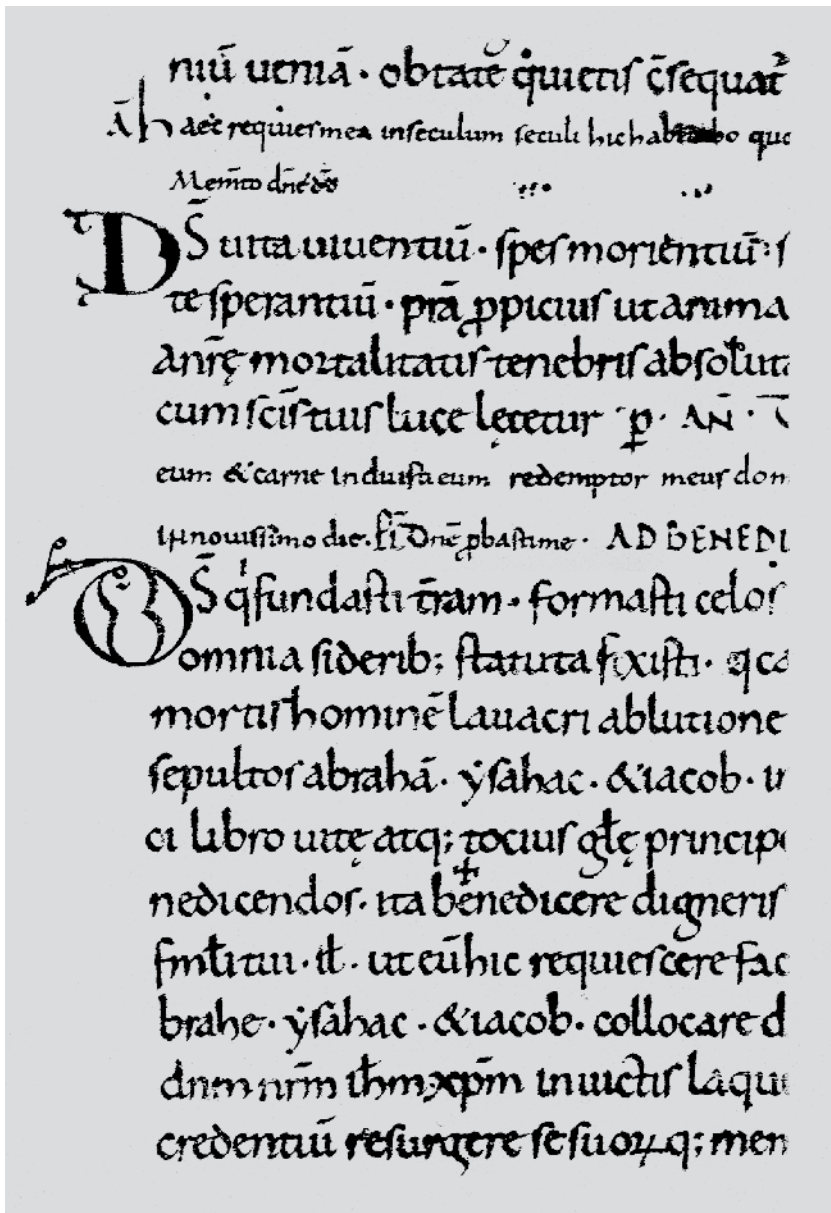 niū ueniā · obtatē q̇uietis c̄sequat᷑
Ā haec req̇uies mea in seculum seculi hic habitabo quo
Mem̄to dn̄e d̄s
DS̄ uita uiuentiū · spes morientiū : s
te sperantiū · prā ꝓpicius ut anima
a nr̄ę mortalitatis tenebris absoluta
cum sc̄is tuis luce lętetur p̱ · AN̄ ·
eum & carne induista eum redemptor meus dom
in nouissimo die. Dn̄e ꝓbasti me · AD BENEDI
DS̄ q fundasti t̄ram · formasti celos
omnia siderib; statuta fixisti · q ca
mortis hominē lauacri ablutione
sepultos abrahā · ẏsahac · & iacob · u
ci libro uitę atq; tocius gl̄ę principe
nedicendos · ita be✝nedicere digneris
fml̄i tui · ił · ut eū hic requiescere fac
brahe · ẏsahac · & iacob · collocare d
dnm nr̄m ih̄m xp̄m inuictis laque
credentiū resurgere se suoꝝq; mem